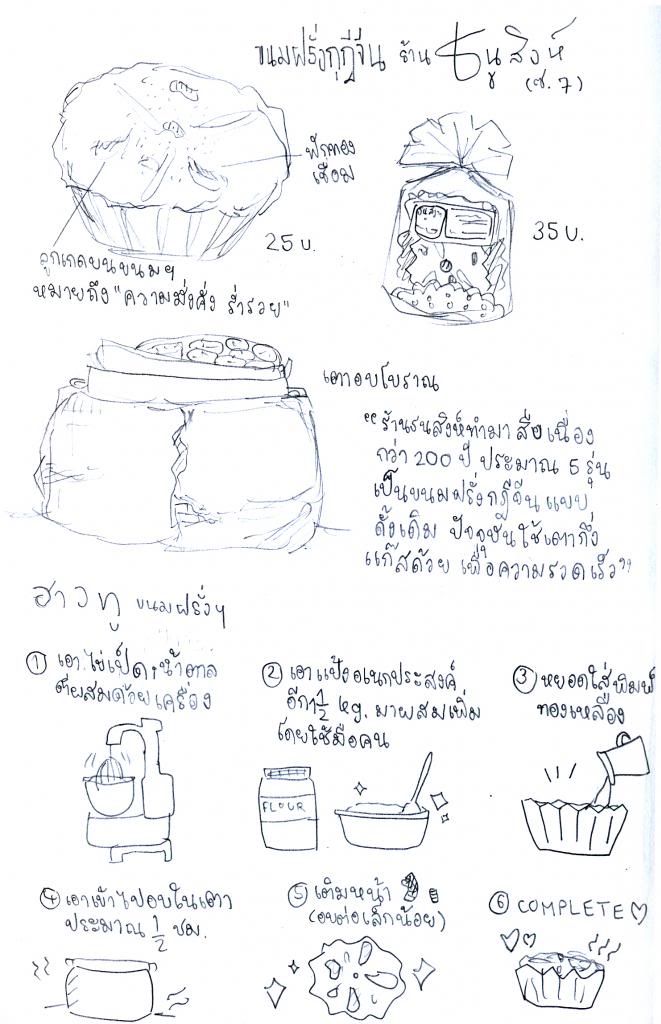 ขนมฝรั่งกุฎีจีน ร้าน ธนูสิงห์
(ซ. 7)
ฟักทอง
เชื่อม
25 บ.
35 บ.
ลูกเกดบนขนมฯ
หมายถึง "ความมั่งคั่ง ร่ำรวย"
เตาอบโบราณ
"ร้านธนูสิงห์ทำมา สืบเนื่อง
กว่า 200 ปี ประมาณ 5 รุ่น
เป็นขนมฝรั่งกุฎีจีน แบบ
ดั้งเดิม ปัจจุบันใช้เตากึ่ง
แก๊สด้วย เพื่อความรวดเร็ว"
ฮาวทู ขนมฝรั่งฯ
① เอาไข่เป็ด+น้ำตาล
ตีผสมด้วยเครื่อง
② เอาแป้งอเนกประสงค์
อีก 1 1/2 kg. มาผสมเพิ่ม
โดยใช้มือคน
③ หยอดใส่พิมพ์
ทองเหลือง
FLOUR
④ เอาเข้าไปอบในเตา
ประมาณ 1/2 ชม.
⑤ เติมหน้า
(อบต่อเล็กน้อย)
⑥ COMPLETE♡